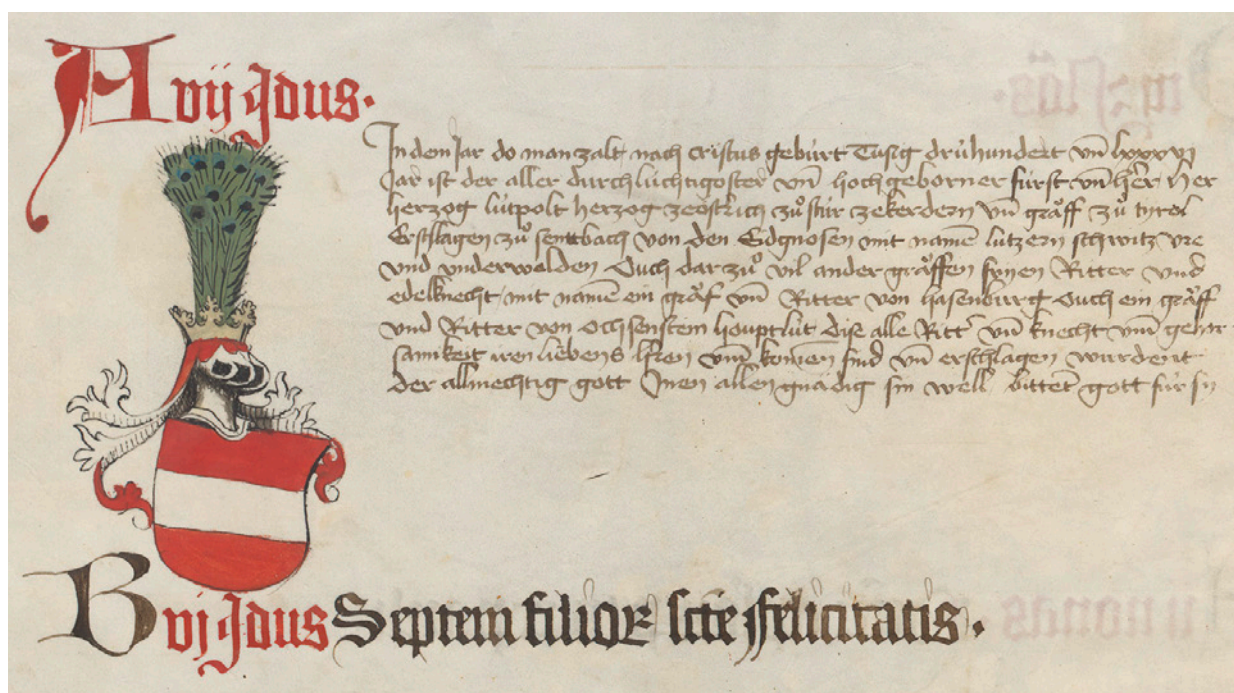 A vij Jdus.
In dem Jar do man zalt nach cristus gebùrt Tusig drùhundert vnͫ lxxxvj
Jar ist der aller durchlùchtigoster vnͫ hochgeborner fùrst vnͫ her Her
herzog lùtpolt herzog ze östrich zuͦ stir ze kerdern vnͫ graͤff zuͦ tyrol
Erschlagen zuͦ sempach von den Edgnosen mit namē lutzern schwitz vre
vnd vnderwalden Ouch dar zuͦ vil ander graͤffen fryen Ritter vnd
edelknecht mit namē ein graͤf vnͫ Ritter von hasenburg Ouch ein graͤff
vnd Ritter von Ochsenstein houptlùt Dise alle Ritt' vnͫ knecht vmͫ gehor
samkeit iren liebens vmͫ komen sind vnͫ erschlagen wurdent
Der allmechtig gott Inen allen gnaͤdig sin well bittet gott fùr sy
B vj Jdus Septem filioꝝ scte felicitatis.